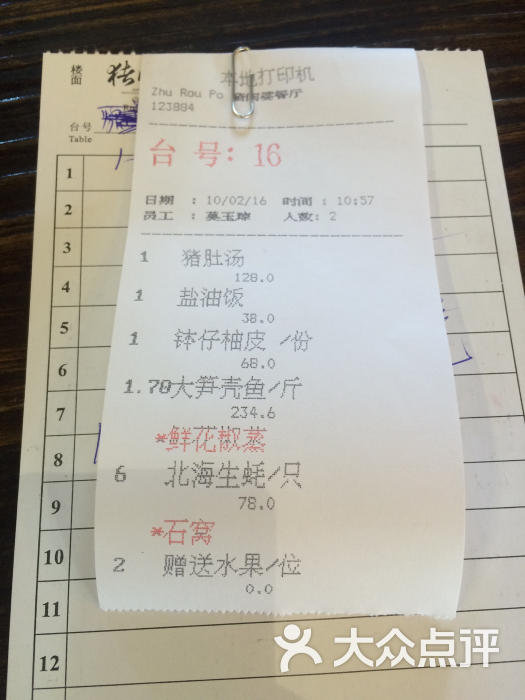 楼面
台号
Table
本地打印机
Zhu Rou Po 猪肉婆餐厅
123884
台 号: 16
日期 : 10/02/16 时间 : 10:57
员工 : 莫玉 人数: 2
1 猪肚汤
128.0
1 盐油饭
38.0
1 钵仔柚皮 /份
68.0
1.70大笋壳鱼/斤
234.6
*鲜花椒蒸
6 北海生蚝/只
78.0
*石窝
2 赠送水果/位
0.0
1
2
3
4
5
6
7
8
9
10
11
12
大众点评